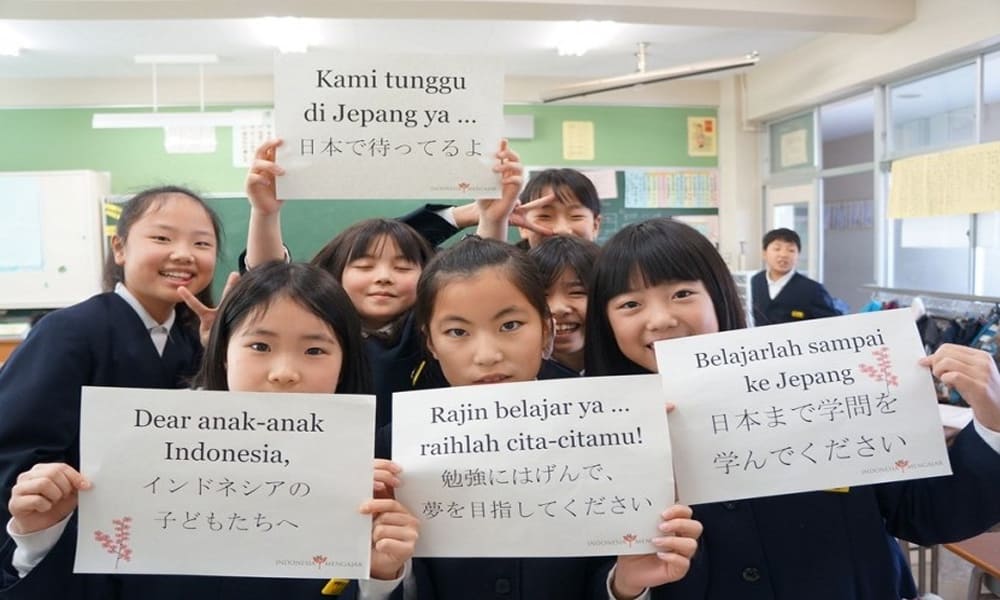 Kami tunggu
di Jepang ya ...
日本で待ってるよ
INDONESIA MENGAJAR
Dear anak-anak
Indonesia,
インドネシアの
子どもたちへ
INDONESIA MENGAJAR
Rajin belajar ya ...
raihlah cita-citamu!
勉強にはげんで、
夢を目指してください
INDONESIA MENG
Belajarlah sampai
ke Jepang
日本まで学問を
学んでください
INDONESIA MENGAJAR